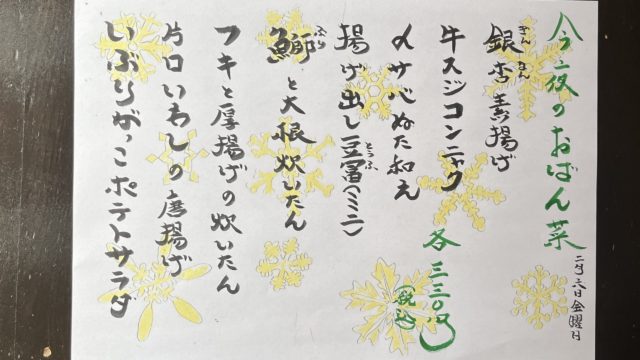 今夜のおばん菜
二月六日金曜日
銀杏素揚げ
ぎんなん
牛スジコンニャク
〆サバぬた和え
揚げ出し豆冨(ミニ)
とうふ
鰤と大根炊いたん
ぶり
フキと厚揚げの炊いたん
片口いわしの唐揚げ
いぶりがっこポテトサラダ
各三三〇円
(税込)